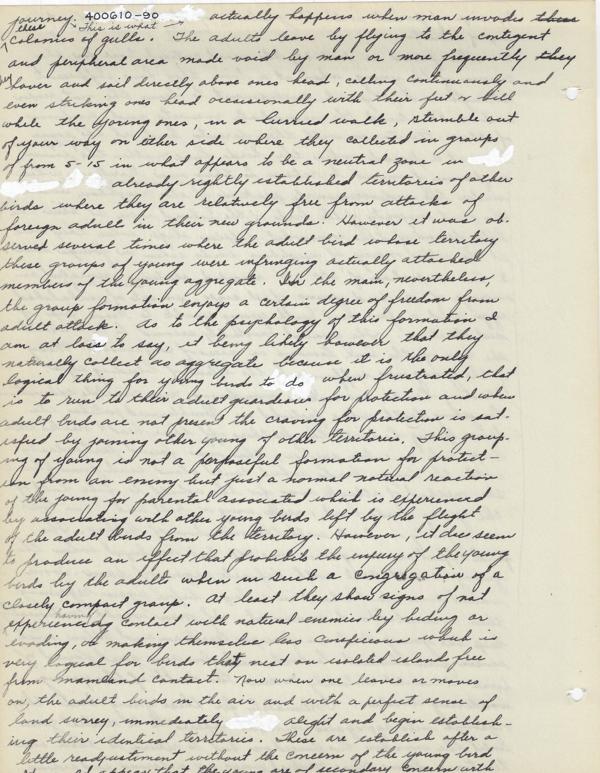 journey. 400610-90 actually happens when man invades these
these This is what
colonies of gulls. The adults leave by flying to the contigent
and peripheral area made void by man or more frequently they
hover and sail directly above ones head, calling continuously and
even striking ones head occasionally with their feet & bill
while the young ones, in a hurried walk, stumble out
of your way on either side where they collected in groups
of from 5-15 in what appears to be a neutral zone in
already rightly established territories of other
birds where they are relatively free from attacks of
foreign adult in their new grounds. However it was ob-
served several times where the adult bird whose territory
these groups of young were infringing actually attacked
members of the young aggregate. In the main, nevertheless,
the group formation enjoys a certain degree of freedom from
adult attack. As to the psychology of this formation I
am at loss to say, it being likely however that they
naturally collect as aggregate because it is the only
logical thing for young birds to do when frustrated, that
is to run to their adult guardians for protection and when
adult birds are not present the craving for protection is sat-
isfied by joining other young of other territories. This group-
ing of young is not a purposeful formation for protect-
ion from an enemy but just a normal natural reaction
of the young for parental associated which is experienced
by associating with other young birds left by the flight
of the adult birds from the territory. However, it does seem
to produce an effect that prohibits the injury of the young
birds by the adults when in such a congregation of a
closely compact group. At least they show signs of not
having
experiencedg contact with natural enemies by hiding or
evading, or making themselves less conspicious which is
very logical for birds that nest on isolated islands free
from mainland contact. Now when one leaves or moves
on, the adult birds in the air and with a perfect sense of
land survey, immediately alight and begin establish-
ing their identical territories. These are establish after a
little readjustment without the concern of the young bird
appear that the young are of secondary concern with